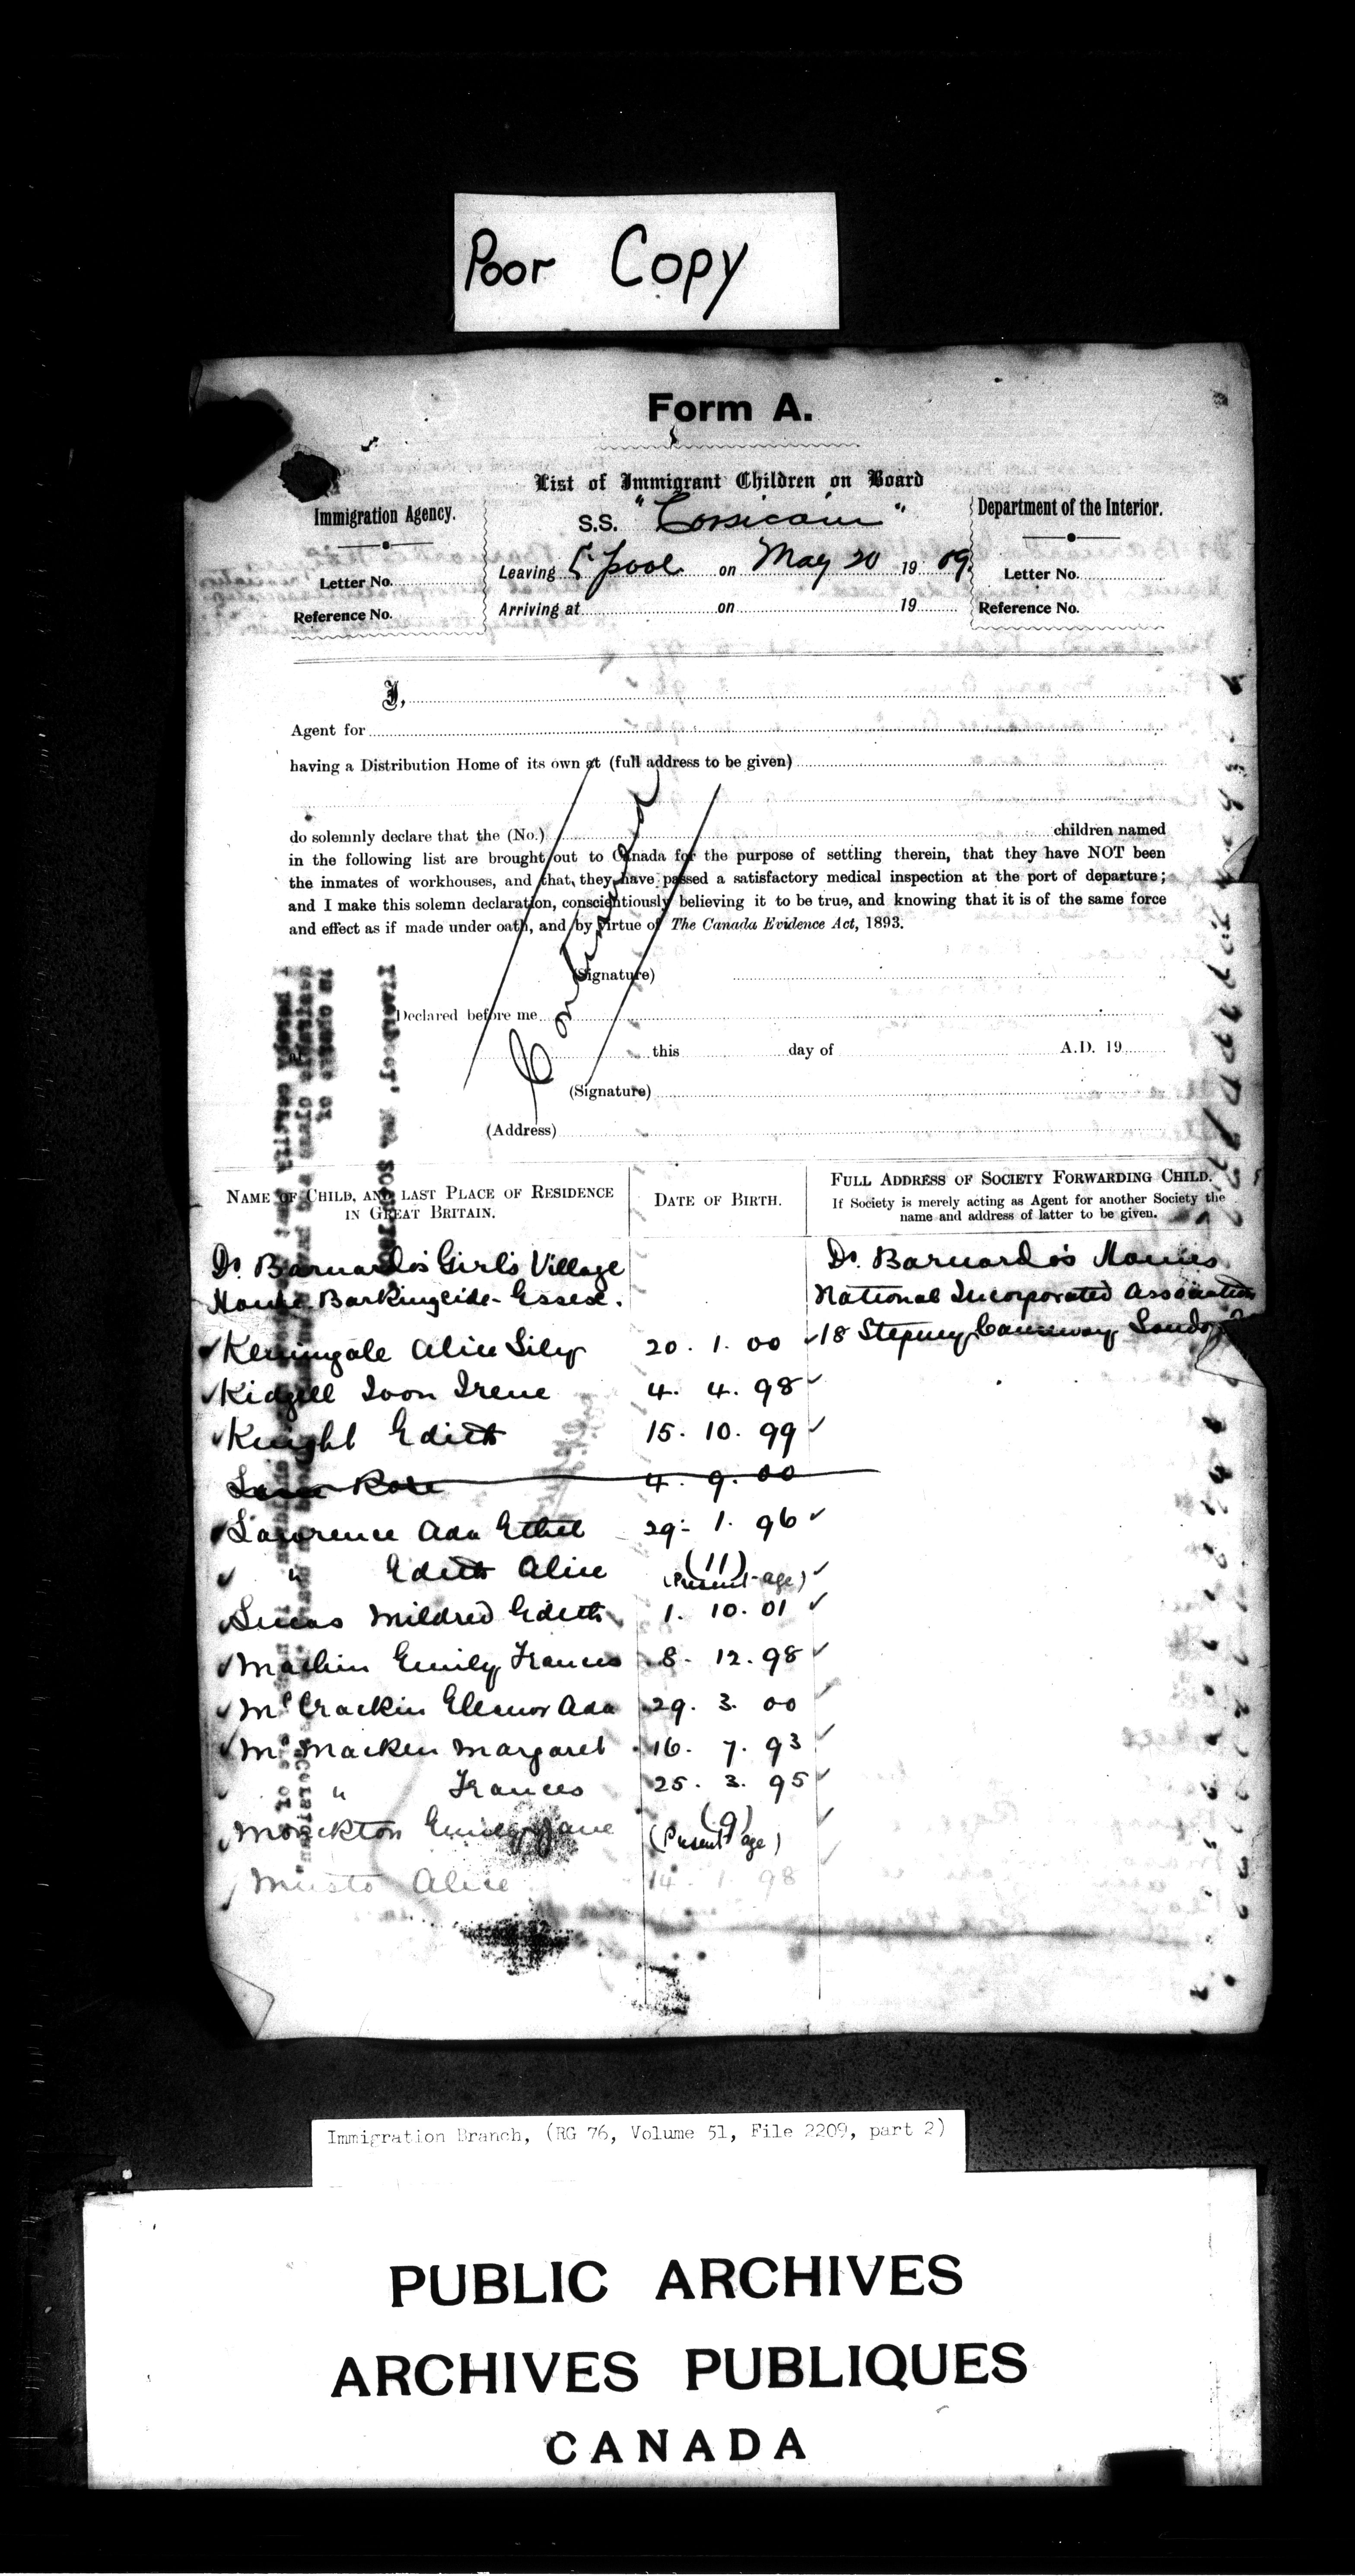 Poor Copy
Form A.
List of Immigrant Children on Board
Immigration Agency.
S.S. "Corsican"
Department of the Interior.
Letter No.
Leaving L'pool on May 20 1909.
Letter No.
Reference No.
Arriving at on 19
Reference No.
I,
Agent for
having a Distribution Home of its own at (full address to be given)
do solemnly declare that the (No.) children named
in the following list are brought out to Canada for the purpose of settling therein, that they have NOT been
the inmates of workhouses, and that they have passed a satisfactory medical inspection at the port of departure;
and I make this solemn declaration, conscientiously believing it to be true, and knowing that it is of the same force
and effect as if made under oath, and by virtue of The Canada Evidence Act, 1893.
Continued
(Signature)
Declared before me
at this day of A.D. 19
(Signature)
(Address)
NAME OF CHILD, AND LAST PLACE OF RESIDENCE
IN GREAT BRITAIN.
DATE OF BIRTH.
FULL ADDRESS OF SOCIETY FORWARDING CHILD.
If Society is merely acting as Agent for another Society the
name and address of latter to be given.
Dr. Barnardo's Girls Village
Home Barkingside Essex.
Dr. Barnardo's Homes
National Incorporated Association
18 Stepney Causeway London
Kerringale Alice Lily 20. 1. 00
Kidgell Ivon Irene 4. 4. 98
Knight Edith 15. 10. 99
Rose 4. 9. 00
Lawrence Ada Ethel 29. 1. 96
" Edith Alice (11)
(Present age)
Lucas Mildred Edith 1. 10. 01
Machin Emily Frances 8. 12. 98
McCrackin Eleanor Ada 29. 3. 00
McMacken Margaret 16. 7. 93
" Frances 25. 3. 95
Monckton Emily Jane (9)
(Present age)
Musto Alice 14. 1. 98
Immigration Branch, (RG 76, Volume 51, File 2209, part 2)
PUBLIC ARCHIVES
ARCHIVES PUBLIQUES
CANADA